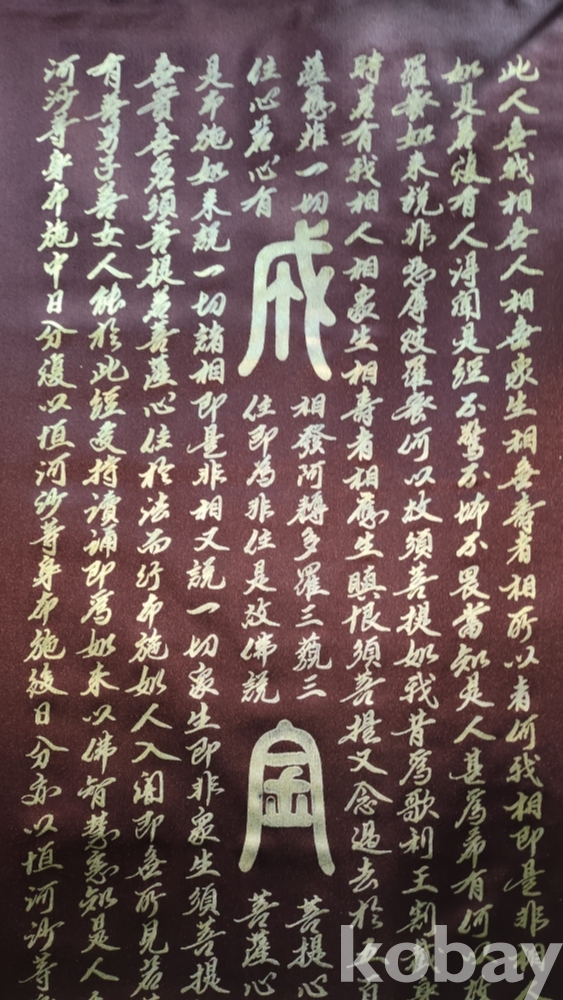 此人無我相無人相無衆生相無壽者相所以者何我相即是非相
如是若復有人得聞是經不驚不怖不畏當知是人甚爲希有何以故
羅蜜如來說非忍辱波羅蜜何以故須菩提如我昔爲歌利王割截
時若有我相人相衆生相壽者相應生瞋恨須菩提又念過去於五百
薩應離一切
相發阿耨多羅三藐三
菩提心
住心若心有
住即為非住是故佛說
菩薩心
戒
金
是布施如来說一切諸相即是非相又說一切衆生即非衆生須菩提
無實無虛須菩提若菩薩心住於法而行布施如人入闇即無所見若
有善男子善女人能於此經受持讀誦即爲如来以佛智慧悉知是人
河沙等身布施中日分復以恒河沙等身布施後日分亦以恒河沙等
kobay